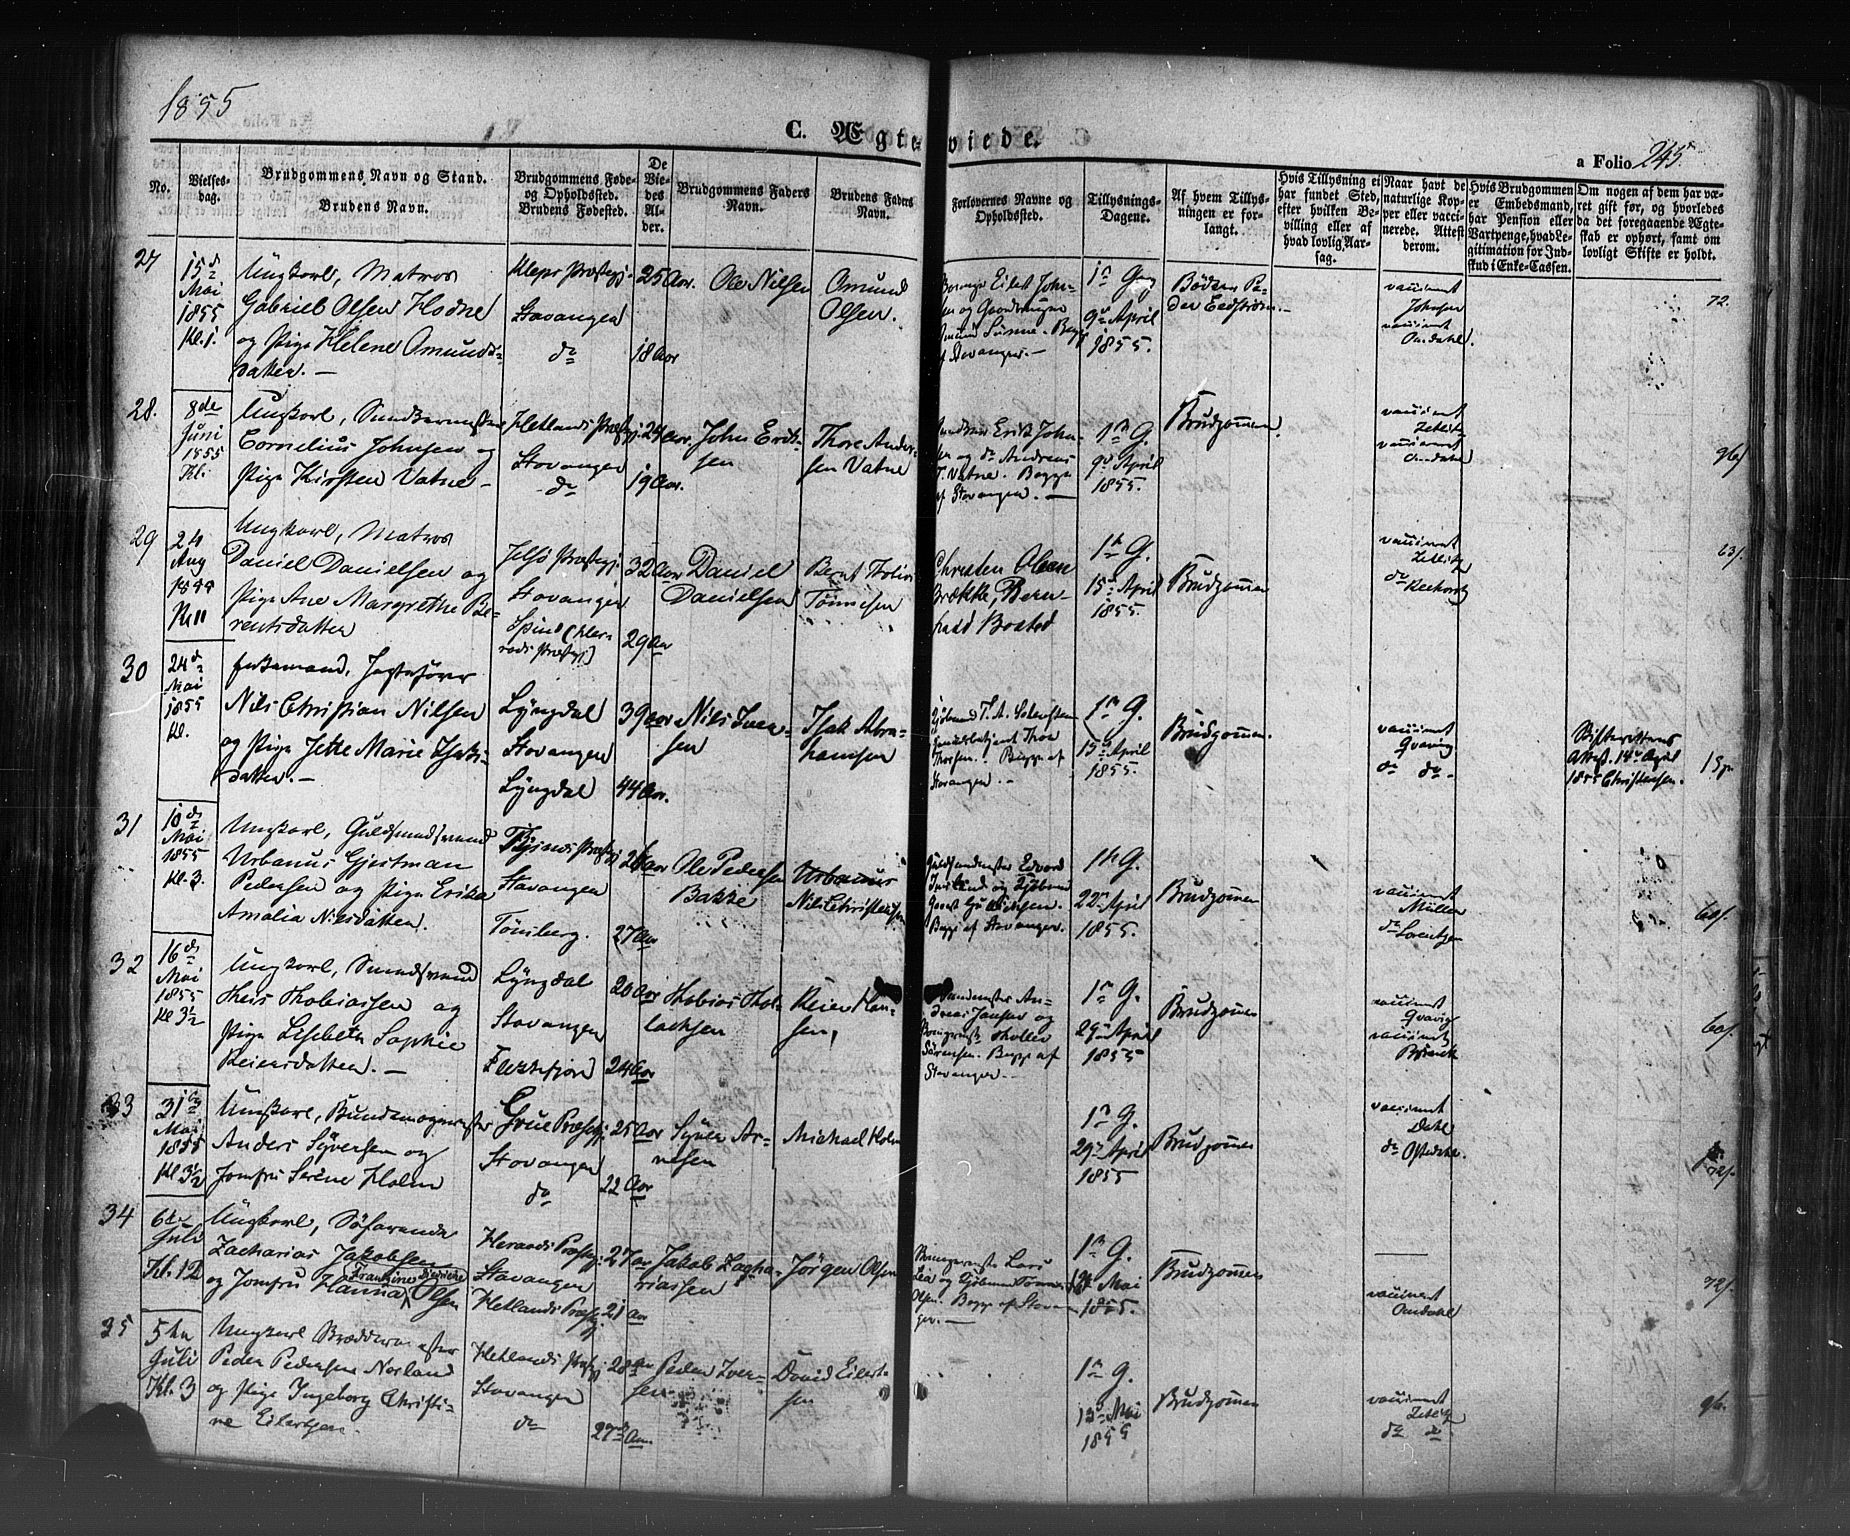 1855
C. Ægteviede.
a Folio 245.
No.
Vielses-
dag.
Brudgommens Navn og Stand.
Brudens Navn.
Brudgommens Føde-
og Opholdssted.
Brudens Fødested.
De
Vie-
des
Al-
der.
Brudgommens Faders
Navn.
Brudens Faders
Navn.
Forlovernes Navne og
Opholdssted.
Tillysnings-
Dagene.
Af hvem Tillys-
ningen er for-
langt.
Hvis Tillysning ei
har fundet Sted,
efter hvilken Be-
villing eller af
hvad lovlig Aar-
sag.
Naar havt de
naturlige Kop-
per eller vacci-
nerede. Attest
derom.
Hvis Brudgommen
er Embedsmand,
har Pension eller
Vartpenge, hvad Le-
gitimation for Ind-
skud i Enke-Cassen.
Om nogen af dem har væ-
ret gift før, og hvorledes
da det foregaaende Ægte-
skab er ophørt, samt om
lovligt Skifte er holdt.
27
15d
Mai
1855
Kl. 1.
Ungkarl, Matros
Gabriel Olsen Hodne
og Pige Helene Amunds-
datter. —
Kleps Præstegj
Stavanger
do
25 Aar.
18 Aar
Ole Nilsen
Omund
Olsen.
Eilert John-
sen og
Bogge
af Stavanger. —
1n Gg
9d April
1855.
Bødker Pe-
der Eedstrøm. —
vaccineret
Johnsen
vaccineret
Omdahl.
72.
28.
8de
Juni
1855
Kl.
Ungkarl,
Cornelius Johnsen og
Pige Kirsten Vatne —
Hetlands Præstegj.
Stavanger
do
24 Aar.
19 Aar.
John Erik-
sen
Thore Ander-
sen Vatne
Erik John-
sen og do Andreas
T. Vatne. Begge
af Stavanger. —
1n G.
9d April
1855.
Brudgommen.
vaccineret
Zetlitz
vaccineret
Omdahl
96/
29
24
Aug
Kl 11
Ungkarl, Matros
Daniel Danielsen og
Pige Ane Margrethe Be-
rentsdatter
Jelsø Præstegj
Stavanger.
Spind (Her-
rads Præstegj)
32 Aar
29 Aar
Daniel
Danielsen
Bernt
Tønnesen
Christen Olsen
Brække, Bern-
hard Bostad
1n G.
15d April
1855.
Brudgommen
vaccineret
Zetlitz
do
30
24d
Mai
1855
Kl.
Enkemand, Jagtefører
Nils Christian Nilsen
og Pige Jette Marie Isaks-
datter. —
Lyngdal
Stavanger
Lyngdal
39 Aar
44 Aar.
Nils Iver-
sen
Isak Abra-
hamsen
Begge af
Stavanger. —
1n G.
15d April
1855.
Brudgommen.
vaccineret
Qvavig
do do.
Skifterettens
Attest. 14d April
1855 Christensen.
31
10d
Mai
1855
Kl. 3.
Ungkarl, Guldsmedsvend
Urbanus Gjestman
Pedersen og Pige Erika
Amalia Nilsdatter.
Stavanger
Tønsberg.
26 Aar
27 Aar
Ole Pedersen
Bakke
Urbanus
Nils Christensen
Guldsmedmester Edvard
Begge af Stavanger.
1n G.
22n April
1855.
Brudgommen
vaccineret
Müller
do Lorentzen
60/.
32
16d
Mai
1855
Kl 3½
Ungkarl, Smedsvend
Theis Thobiassen og
Pige Lisebeth Sophie
Reiersdatter. —
Lyngdal
Stavanger
Flekkefjord
20 Aar
24 Aar
Thobias Thol-
lachsen
Reier Han-
sen,
Smedmester An-
dreas Jansen og
Tholler
Sørensen. Begge af
Stavanger. —
1n G.
29n April
1855
Brudgommen
vaccineret
Qvavig
vaccineret
60/.
33
31
Mai
1855
Kl. 3½
Ungkarl, Bundtmagermester
Anders Syversen og
Jomfru Serine Holm
Grue Præstegj.
Stavanger
do
25 Aar
22 Aar
Syver Ar-
nesen
Michael Holm
1n G.
29n April
1855
Brudgommen
vaccineret
Dahl
do
72/.
34
6te
Juli
Kl. 12
Ungkarl, Søfarende
Zacharias Jakobsen
og Jomfru Hanna Olsen
Herands Præstegj.
Stavanger
Hetlands Præstegj
27 Aar
21 Aar
Jakob Zacha-
riassen
Jørgen Olsen
Lars
Olsen. Begge af Stavan-
ger. —
1n G.
Mai
1855.
Brudgommen
vaccineret
Omdahl
72/.
35
5te
Juli
Kl. 3
Ungkarl
Peder Pedersen Norland
og Pige Ingeborg Christi-
ne Eilertsen.
Hetlands Præstegj
Stavanger
do
28 Aar
27 Aar.
Peder Iver-
sen
David Eilert-
sen
1n G.
13d Mai
1855
Brudgommen
vaccineret
Zetlitz
do do
96.